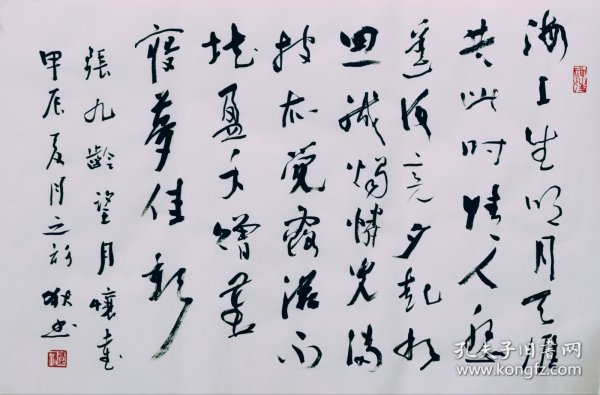 海上生明月天涯
共此时情人怨
遥夜竟夕起相
思滅燭憐光滿
披衣覺露滋不
堪盈手贈還
寝夢佳期
張九齡望月懷遠
甲辰夏月之初 书
孔夫子旧书网
www.kongfz.com